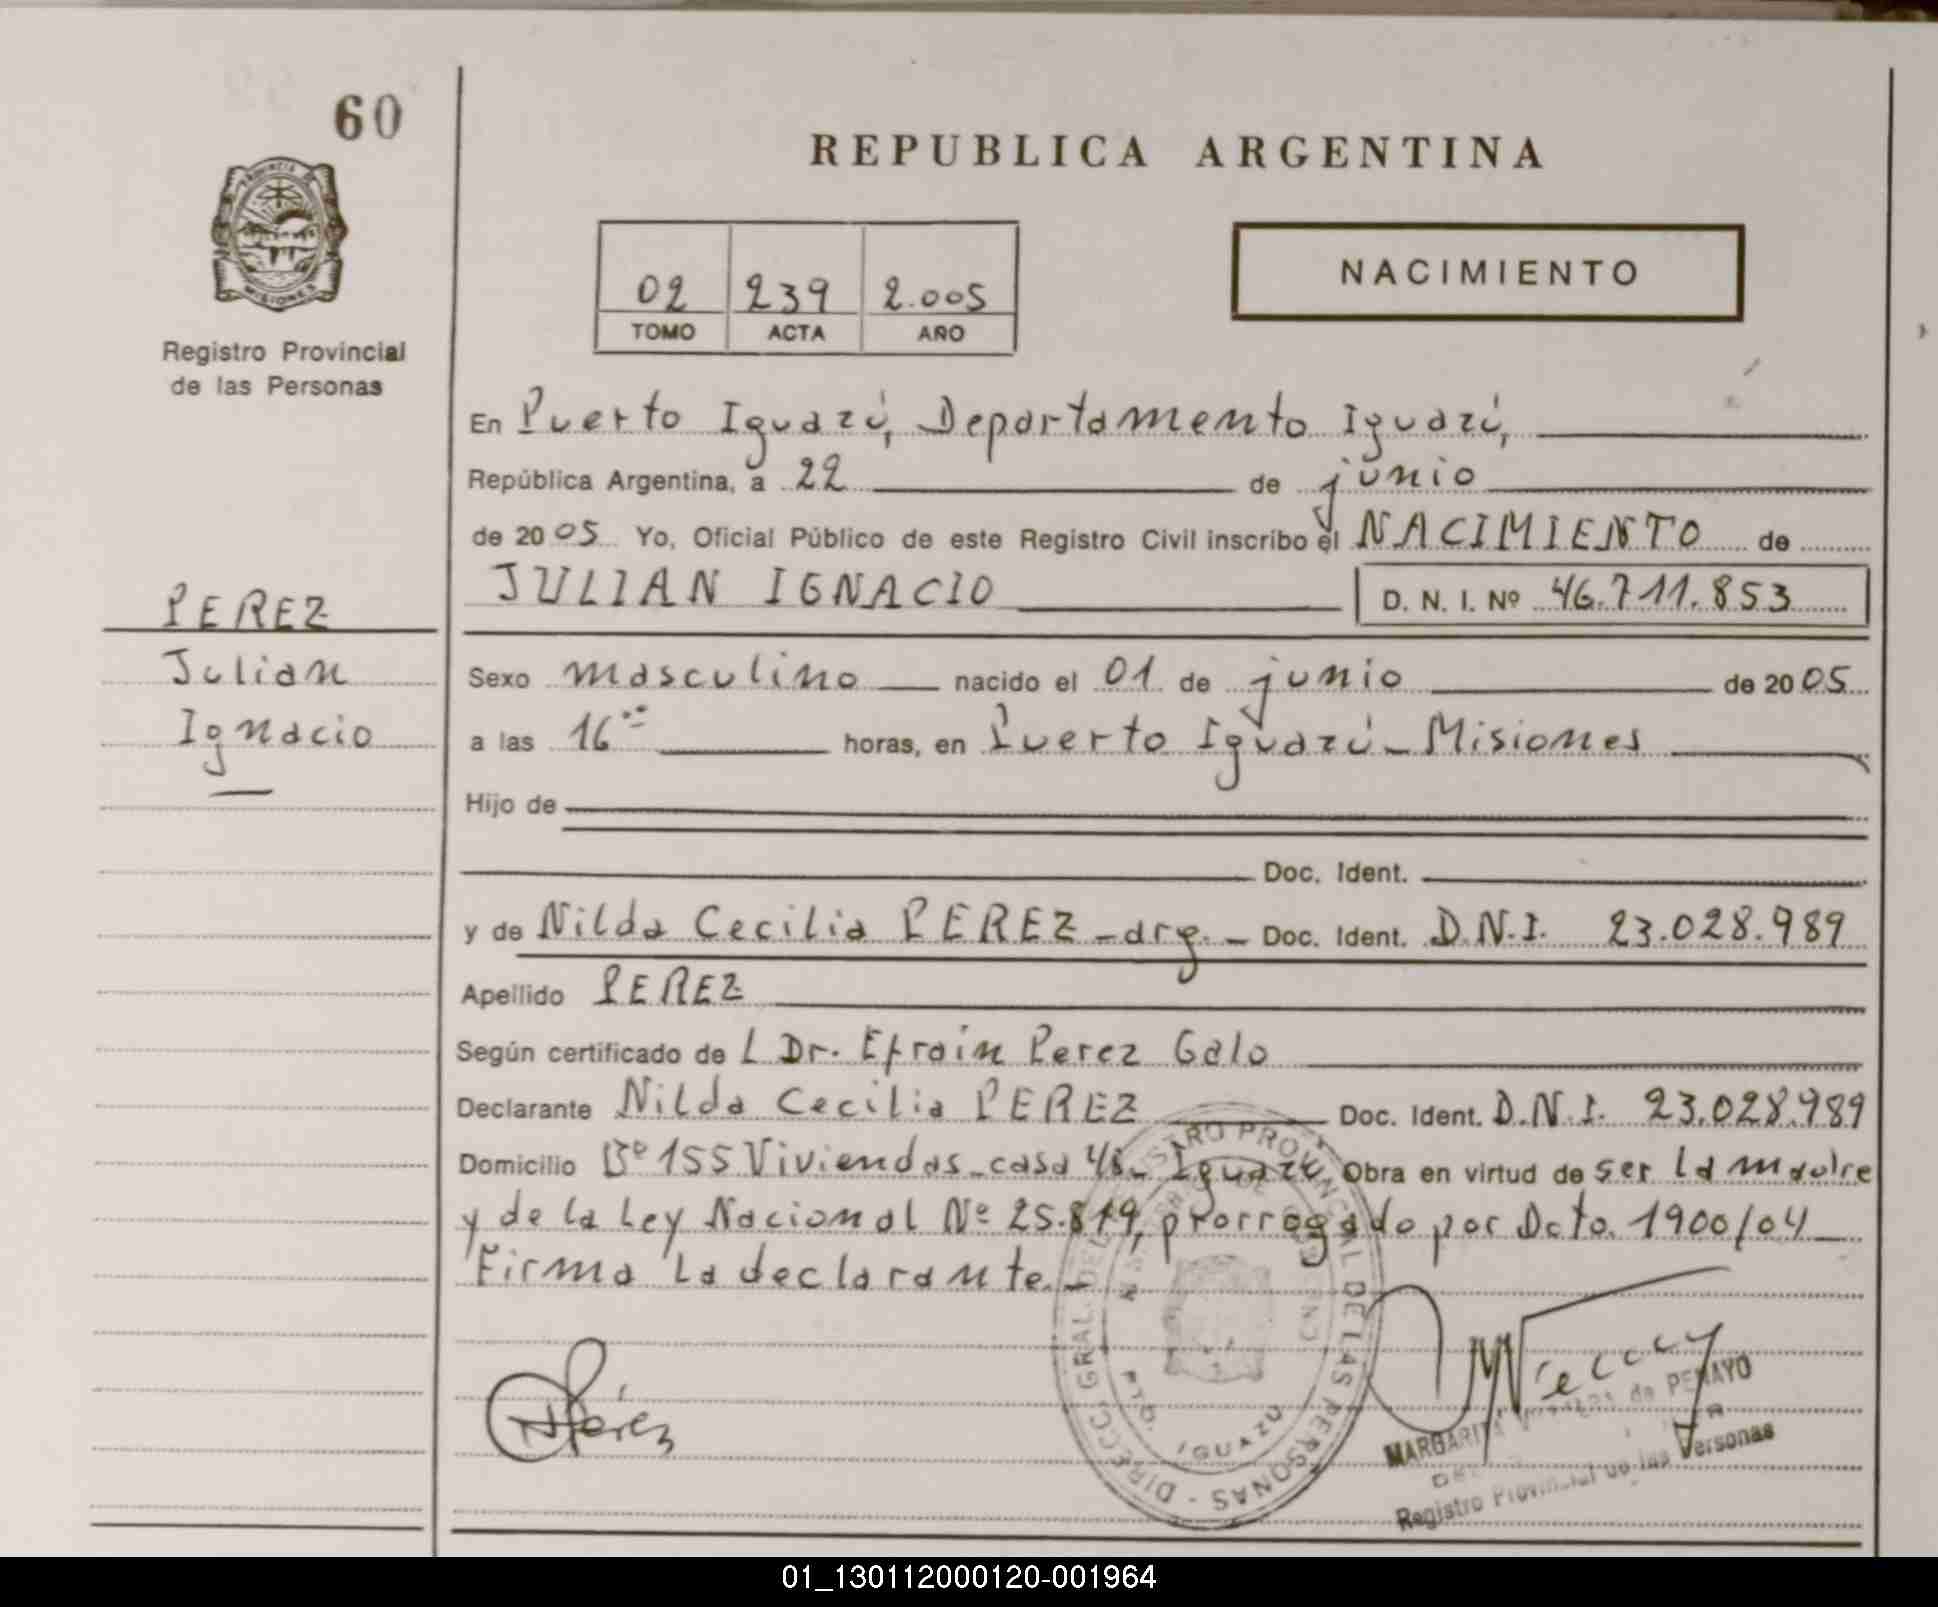 60
REPUBLICA ARGENTINA
PROVINCIA DE
MISIONES
Registro Provincial
de las Personas
02 239 2.005
TOMO ACTA AÑO
NACIMIENTO
En Puerto Iguazú, Departamento Iguazú,
República Argentina, a 22 de junio
de 2005 Yo, Oficial Público de este Registro Civil inscribo el NACIMIENTO de
JULIAN IGNACIO D. N. I. Nº 46.711.853
PEREZ
Julian
Ignacio
Sexo masculino nacido el 01 de junio de 2005
a las 16 horas, en Puerto Iguazú - Misiones
Hijo de
Doc. Ident.
y de Nilda Cecilia PEREZ - arg. - Doc. Ident. D.N.I. 23.028.989
Apellido PEREZ
Según certificado de L Dr. Efrain Perez Galo
Declarante Nilda Cecilia PEREZ Doc. Ident. D.N.I. 23.028.989
Domicilio Bº 155 Viviendas - casa Iguazú Obra en virtud de ser la madre
y de la Ley Nacional Nº 25.819, prorrogado por Dcto. 1900/04
Firma la declarante. -
Pérez
DIRECC. GRAL. DEL REGISTRO PROVINCIAL DE LAS PERSONAS -
PTO. IGUAZU
MARGARITA de PENAYO
Registro Provincial de las Personas
01_130112000120-001964